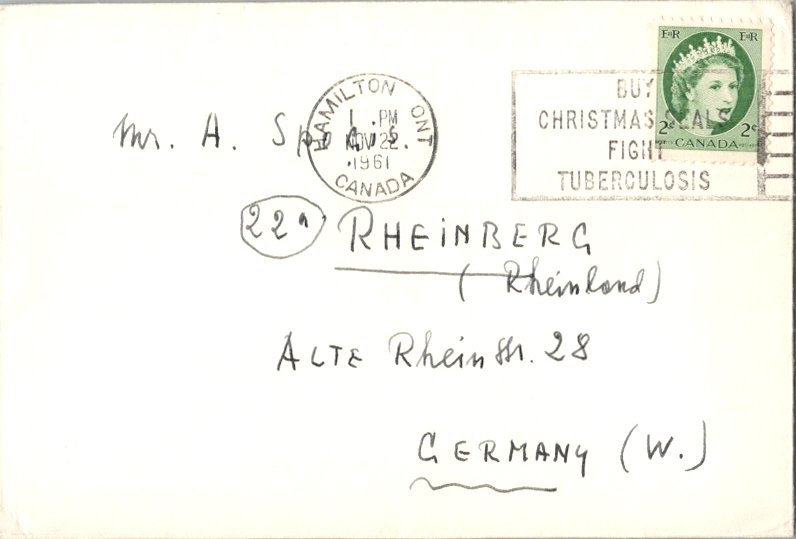 E R E R
2c 2c
CANADA
HAMILTON ONT
1 PM
NOV 22
1961
CANADA
BUY
CHRISTMAS SEALS
FIGHT
TUBERCULOSIS
Mr. A.
22a RHEINBERG
(Rheinland)
ALTE Rheinstr. 28
GERMANY (W.)